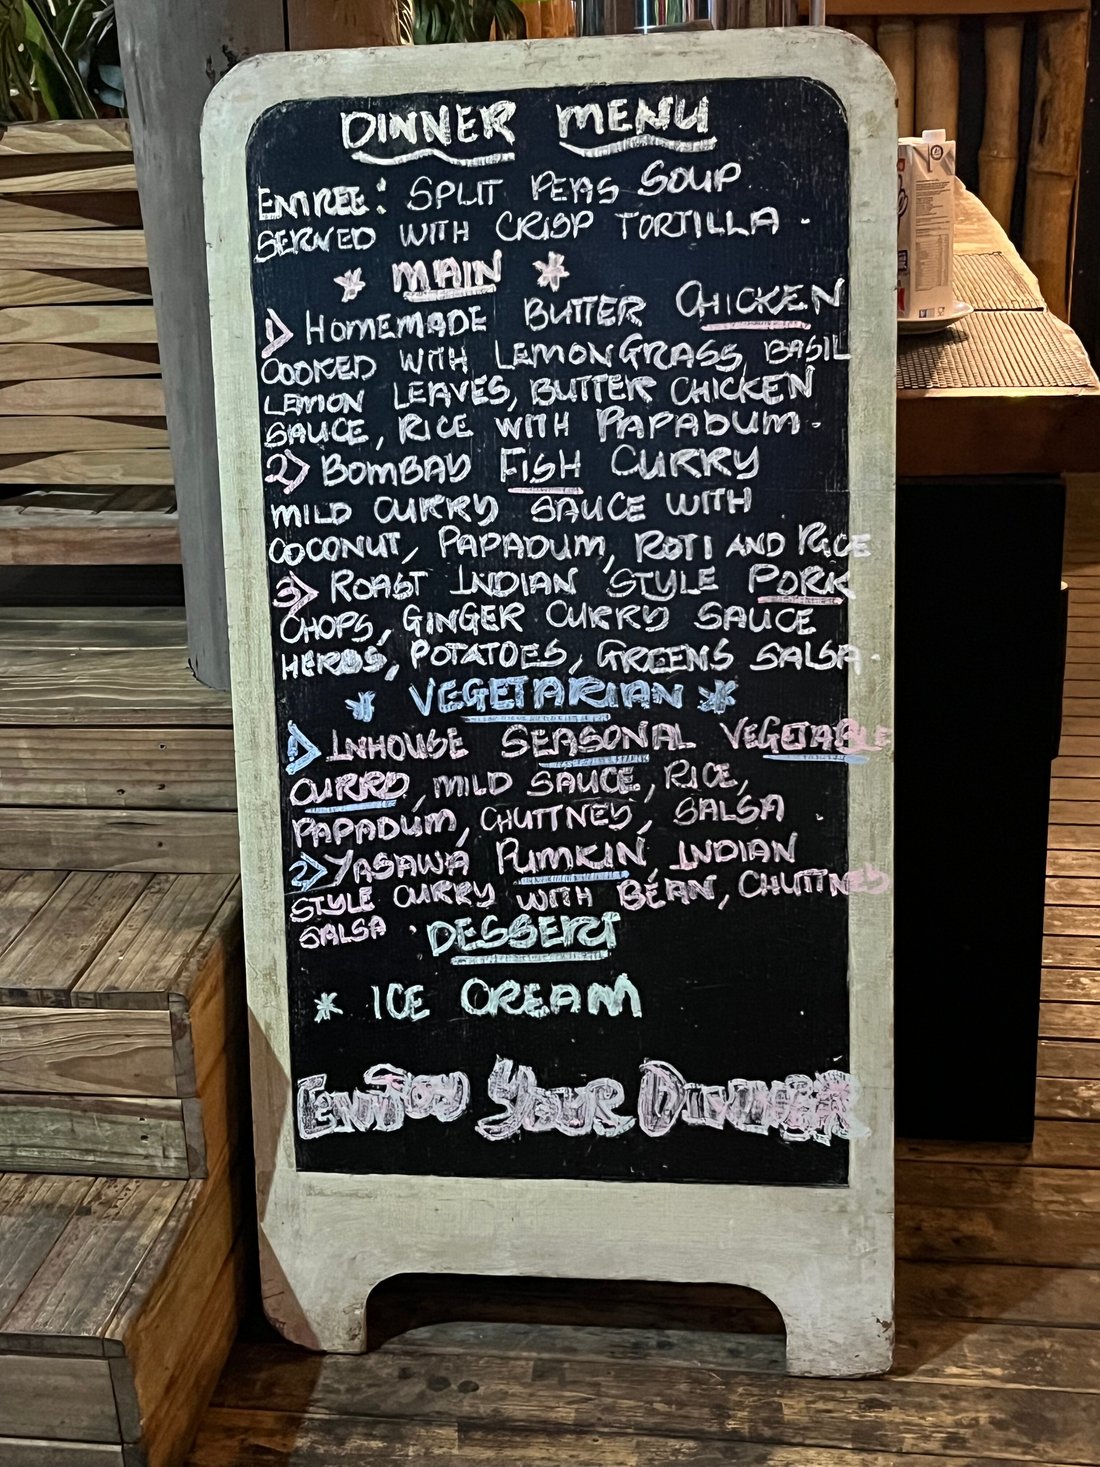 DINNER MENU
ENTREE: SPLIT PEAS SOUP
SERVED WITH CRISP TORTILLA.
* MAIN *
1> HOMEMADE BUTTER CHICKEN
COOKED WITH LEMONGRASS, BASIL
LEMON LEAVES, BUTTER CHICKEN
SAUCE, RICE WITH PAPADUM.
2> BOMBAY FISH CURRY
MILD CURRY SAUCE WITH
COCONUT, PAPADUM, ROTI AND RICE
3> ROAST INDIAN STYLE PORK
CHOPS, GINGER CURRY SAUCE
HERBS, POTATOES, GREENS SALSA.
* VEGETARIAN *
1> INHOUSE SEASONAL VEGETABLE
CURRY, MILD SAUCE, RICE,
PAPADUM, CHUTTNEY, SALSA.
2> YASAWA PUMKIN INDIAN
STYLE CURRY WITH BEAN, CHUTTNEY
SALSA.
DESSERT
* ICE CREAM
ENJOY YOUR DINNER